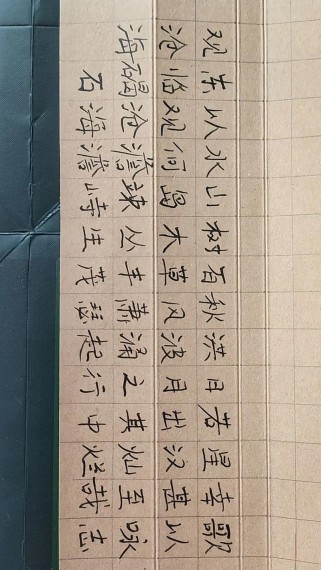 观沧海
东临碣石
以观沧海
水何澹澹
山岛竦峙
树木丛生
百草丰茂
秋风萧瑟
洪波涌起
日月之行
若出其中
星汉灿烂
幸甚至哉
歌以咏志